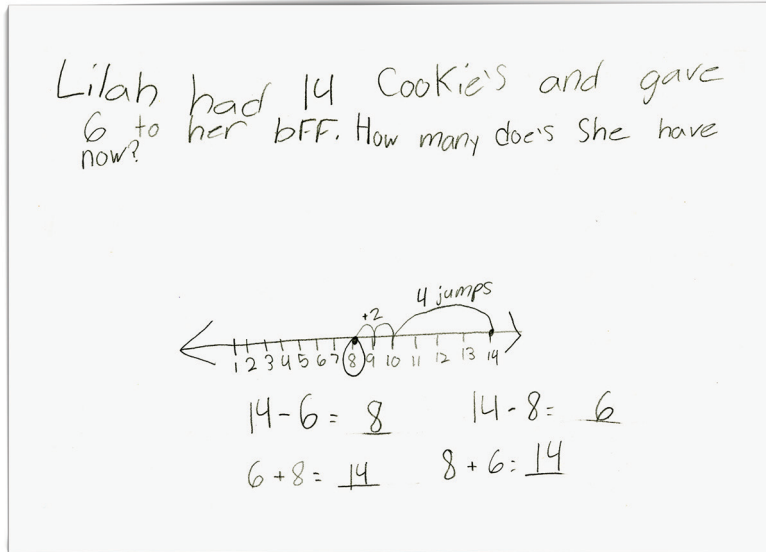 Lilah had 14 Cookie's and gave
6 to her bFF. How many doe's She have
now?
4 jumps
+2
1 2 3 4 5 6 7 8 9 10 11 12 13 14
14 - 6 = 8 14 - 8 = 6
6 + 8 = 14 8 + 6 = 14